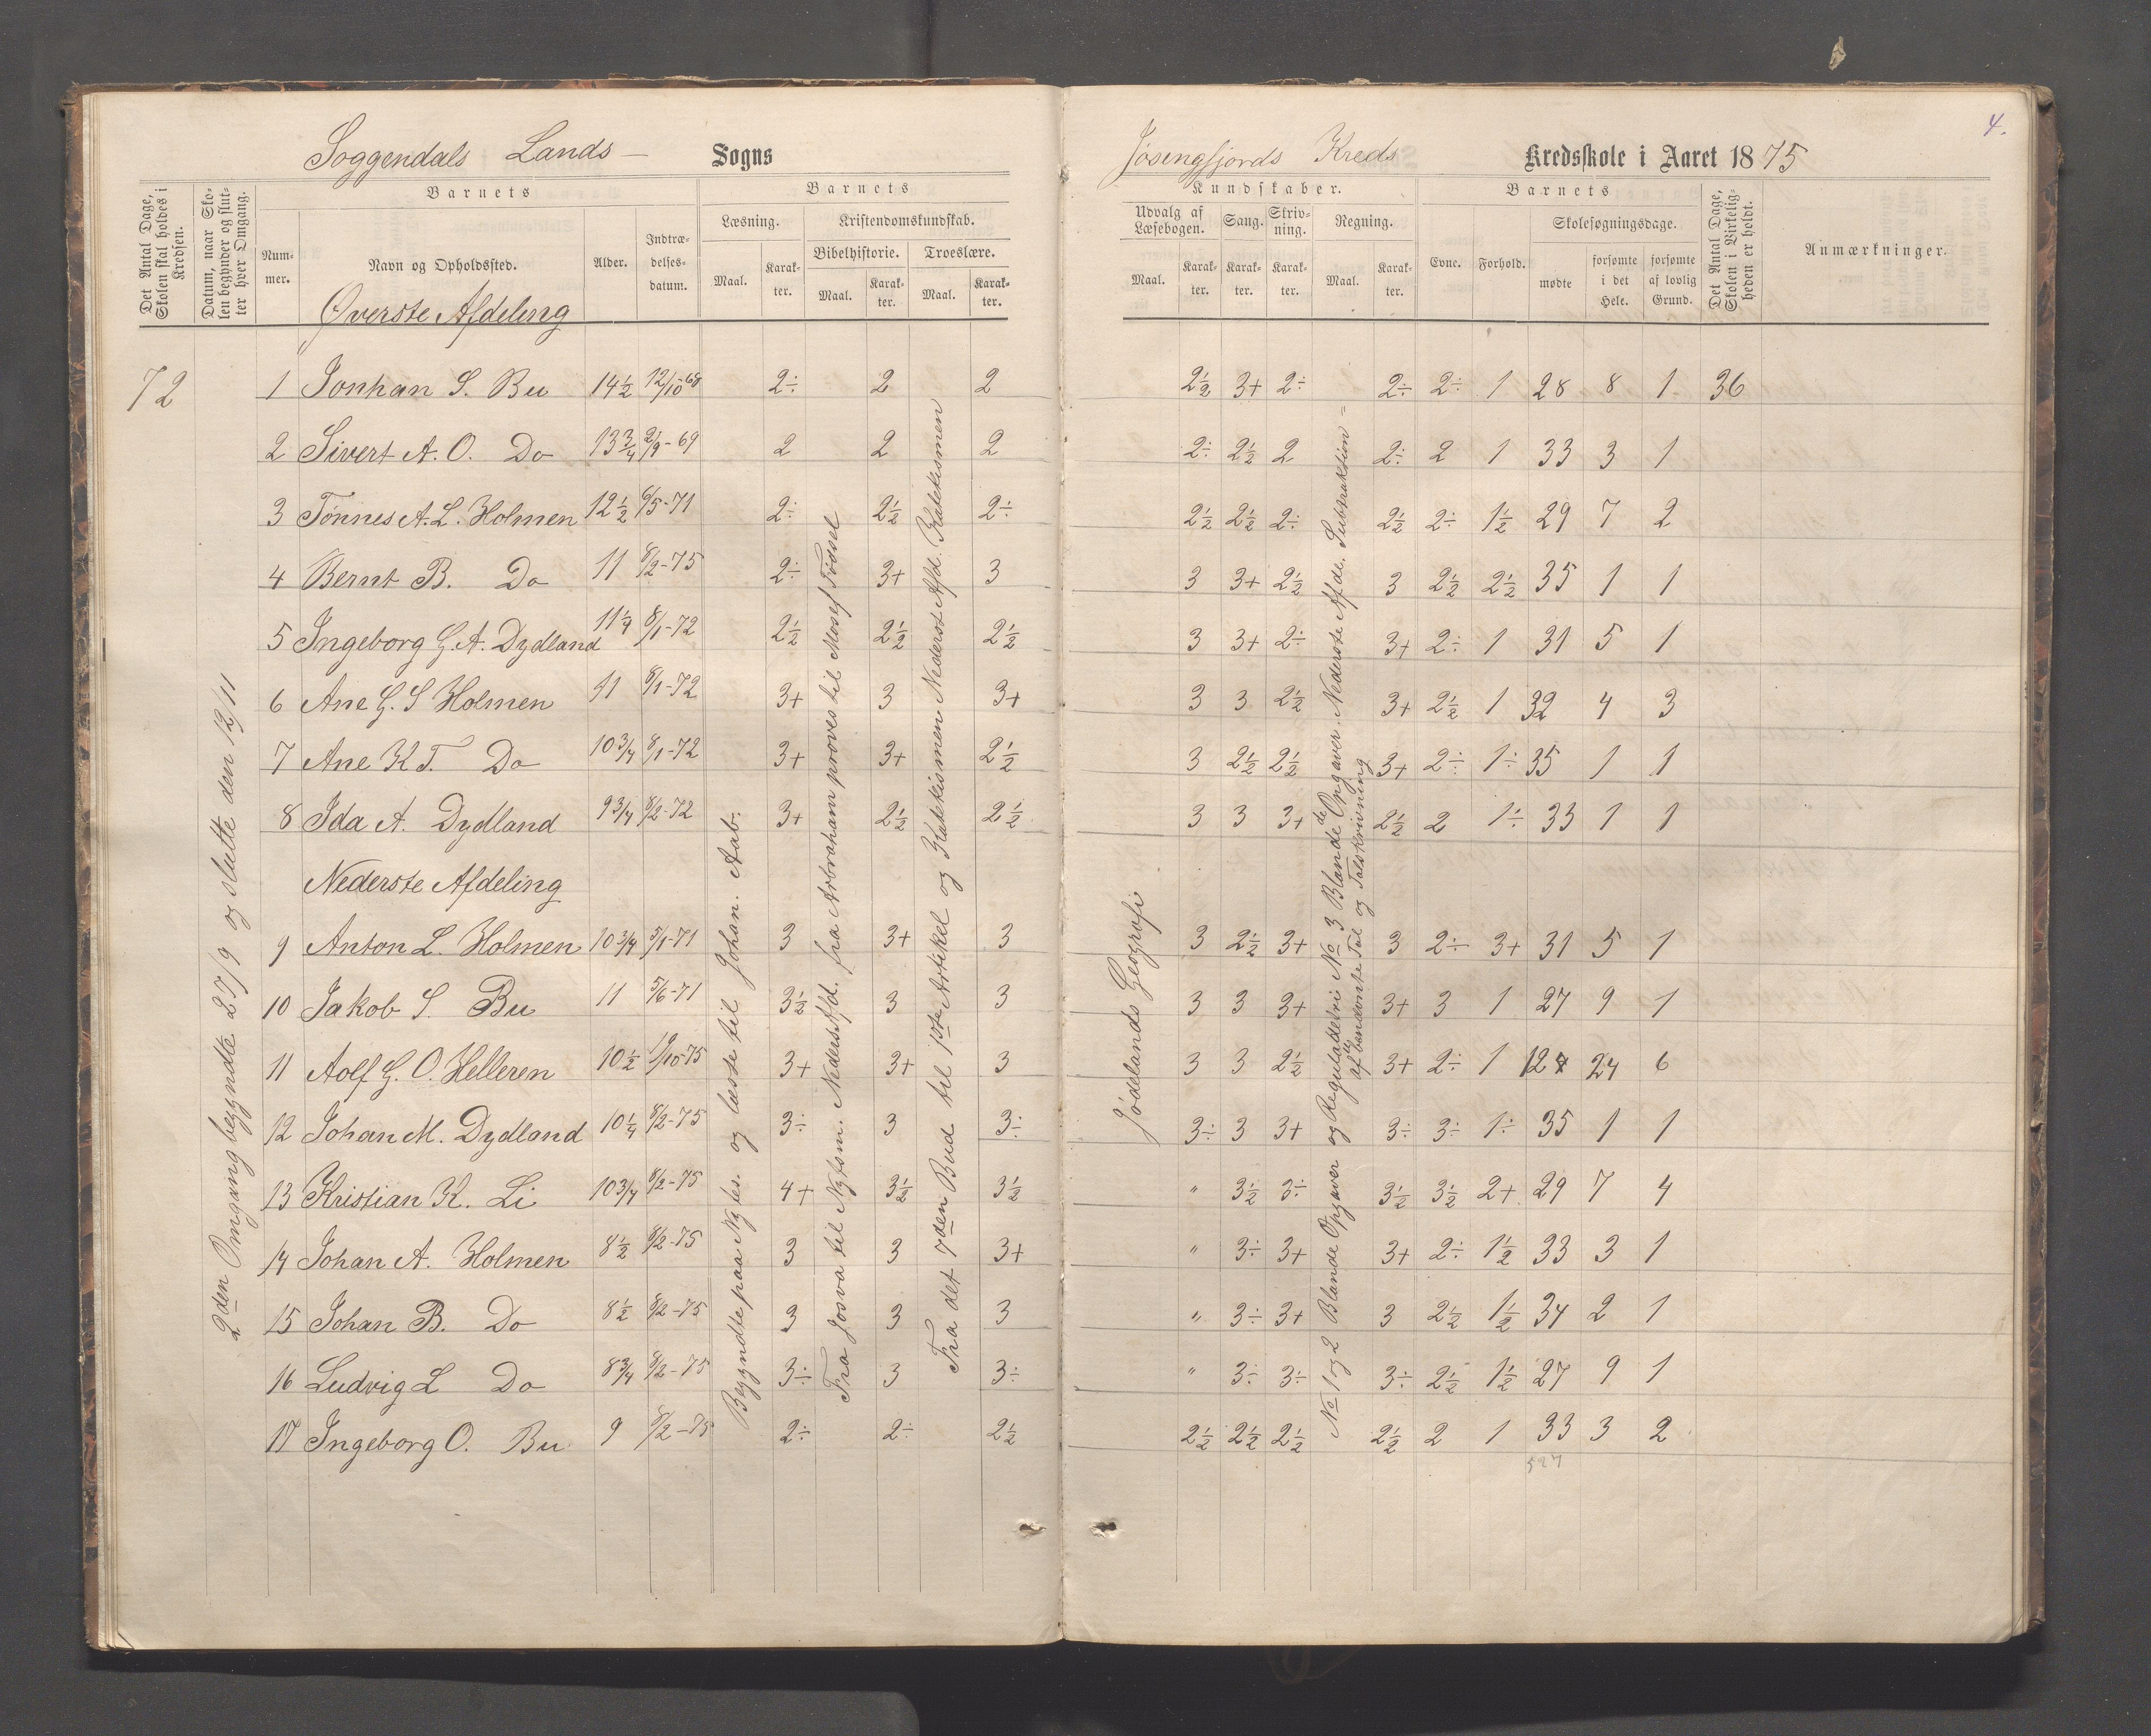 4.
Soggendals Lands— Sogns
Jøsengfjords Kreds Kredsskole i Aaret 1875
Det Antal Dage, Skolen skal holdes i Kredsen.
Datum, naar Skolen begynder og slutter hver Omgang.
Barnets
Nummer.
Navn og Opholdssted.
Alder.
Indtrædelsesdatum.
Barnets
Læsning.
Maal.
Karakter.
Kristendomskundskab.
Bibelhistorie.
Maal.
Karakter.
Troeslære.
Maal.
Karakter.
Kundskaber.
Udvalg af Læsebogen.
Maal.
Karakter.
Sang.
Karakter.
Skrivning.
Karakter.
Regning.
Maal.
Karakter.
Barnets
Evne.
Forhold.
Skolesøgningsdage.
mødte
forsømte i det Hele.
forsømte af lovlig Grund.
Det Antal Dage, Skolen i Virkeligheden er holdt.
Anmærkninger.
Øverste Afdeling
72 1 Jonhan S. Bu 14½ 12/10-68 2÷ 2 2 2½ 3+ 2÷ 2÷ 2÷ 1 28 8 1 36
2 Sivert A. O. Do 13¾ 2/9-69 2 2 2 2÷ 2½ 2 2÷ 2 1 33 3 1
3 Tønnes A. L. Holmen 12½ 6/5-71 2÷ 2½ 2÷ 2½ 2½ 2÷ 2½ 2÷ 1½ 29 7 2
4 Bernt B. Do 11 8/2-75 2÷ 3+ 3 3 3+ 2½ 3 2½ 2½ 35 1 1
5 Ingeborg G. A. Dydland 11¼ 8/1-72 2½ 2½ 2½ 3 3+ 2÷ 3+ 2÷ 1 31 5 1
6 Ane G. S Holmen 11 8/1-72 3+ 3 3+ 3 3 2½ 3+ 2½ 1 32 4 3
7 Ane K T. Do 10¾ 8/1-72 3+ 3+ 2½ 3 2½ 2½ 3+ 2÷ 1÷ 35 1 1
8 Ida A. Dydland 9¾ 8/2-72 3+ 2½ 2½ 3 3 3+ 2½ 2 1÷ 33 1 1
Nederste Afdeling
9 Anton L. Holmen 10¾ 5/1-71 3 3+ 3 3 2½ 3+ 3 2÷ 3+ 31 5 1
10 Jakob S. Bu 11 5/6-71 3½ 3 3 3 3 3+ 3+ 3 1 27 9 1
11 Aolf G. O. Helleren 10½ 19/10-75 3+ 3+ 3 3 3 2½ 3+ 2÷ 1 12 24 6
12 Johan M. Dydland 10¼ 8/2-75 3÷ 3 3÷ 3÷ 3 3+ 3÷ 3÷ 1÷ 35 1 1
13 Kristian K. Li 10¾ 8/2-75 4+ 3½ 3½ " 3½ 3÷ 3½ 3½ 2+ 29 7 4
14 Johan A. Holmen 8½ 8/2-75 3 3 3+ " 3÷ 3+ 3+ 2÷ 1½ 33 3 1
15 Johan B. Do 8½ 8/2-75 3 3 3 " 3÷ 3+ 3 2½ 1½ 34 2 1
16 Ludvig L Do 8¾ 8/2-75 3÷ 3 3÷ " 3÷ 3÷ 3÷ 2½ 1½ 27 9 1
17 Ingeborg O. Bu 9 8/2-75 2÷ 2÷ 2½ 2½ 2½ 2½ 2½ 2 1 33 3 2
527
2den Omgang begyndte 27/9 og slutte den 12/11
Begyndte paa Nytes. og læste til Johan. Aab.
Fra Josva til Nytsm. Nederst Afd. fra Arbraham proves til Moses Fødsel
Fra det 7den Bud til 1ste Artikel og Katekismen Nederst Afd. Katekismen
Jødelands Geografi
No 1 og 2 Blande Opgaver og Reguladetri No 3 Blandede Opgaver. Nederste Afde. Subtraktion=
af bendævnte Tal og Talskrivning